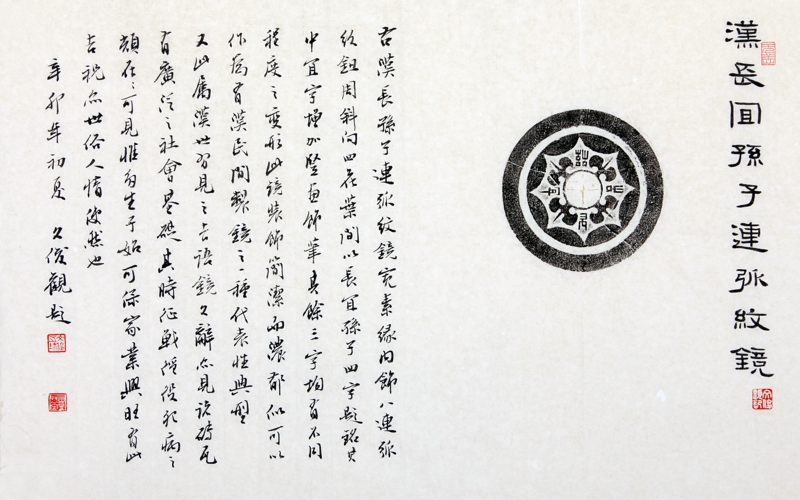 漢長宜孫子連弧紋鏡
右漢長孫子連弧紋鏡寬素緣内飾八連弧
紋鈕周斜向四花葉間以長宜孫子四字題銘其
中宜字增加竪畫飾筆其餘三字均有不同
程度之變形此鏡裝飾簡潔而濃郁似可以
作爲有漢民間製鏡之一種代表性典型
又此屬漢世習見之吉語鏡文辭亦見诸磚瓦
有廣泛之社會基礎其時征戰徭役死病之
在々可見惟多生子始可保家業興旺有此
吉祝亦世俗人情使然也
辛卯年初夏 文俊觀題